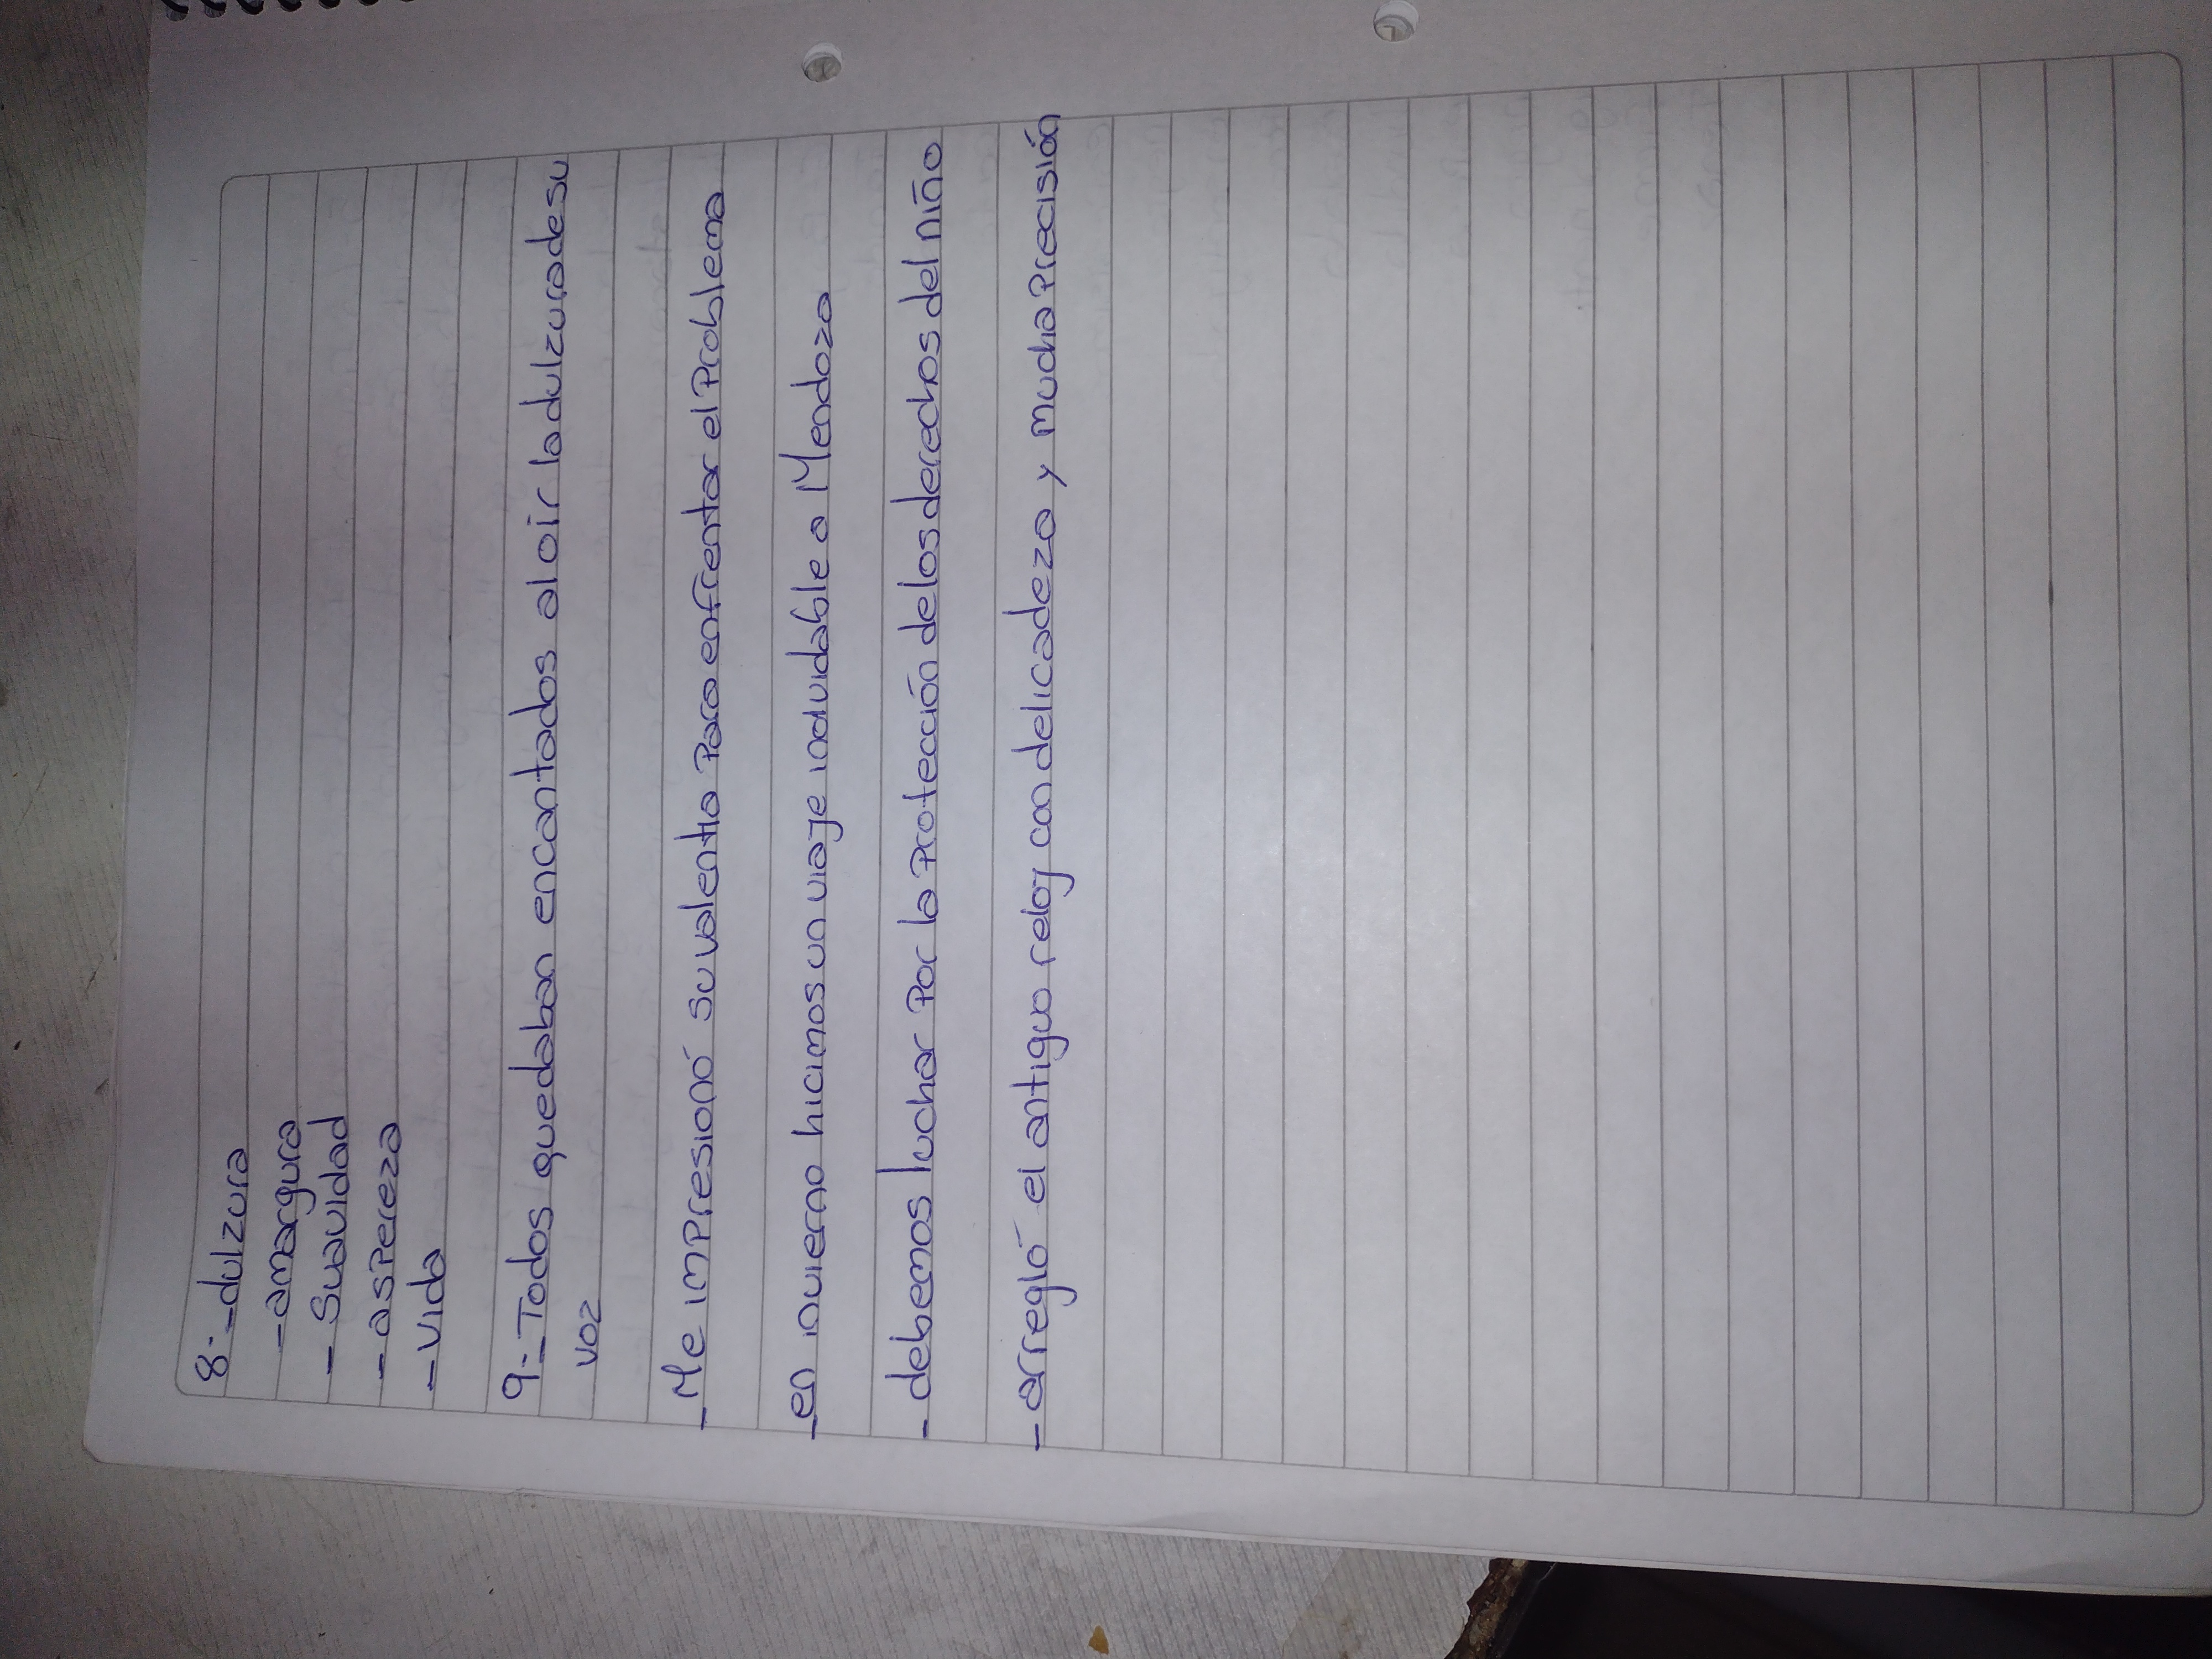 8-_dulzura
-amargura
- Suavidad
- aspereza
- Vida
9-_Todos quedaban encantados al oír la dulzura de su
voz
_Me impresionó su valentia Para enfrentar el Problema
_en invierno hicimos un viaje indudable a Mendoza
- debemos luchar Por la Protección de los derechos del niño
- arregló el antiguo reloj con delicadeza y mucha Precisión